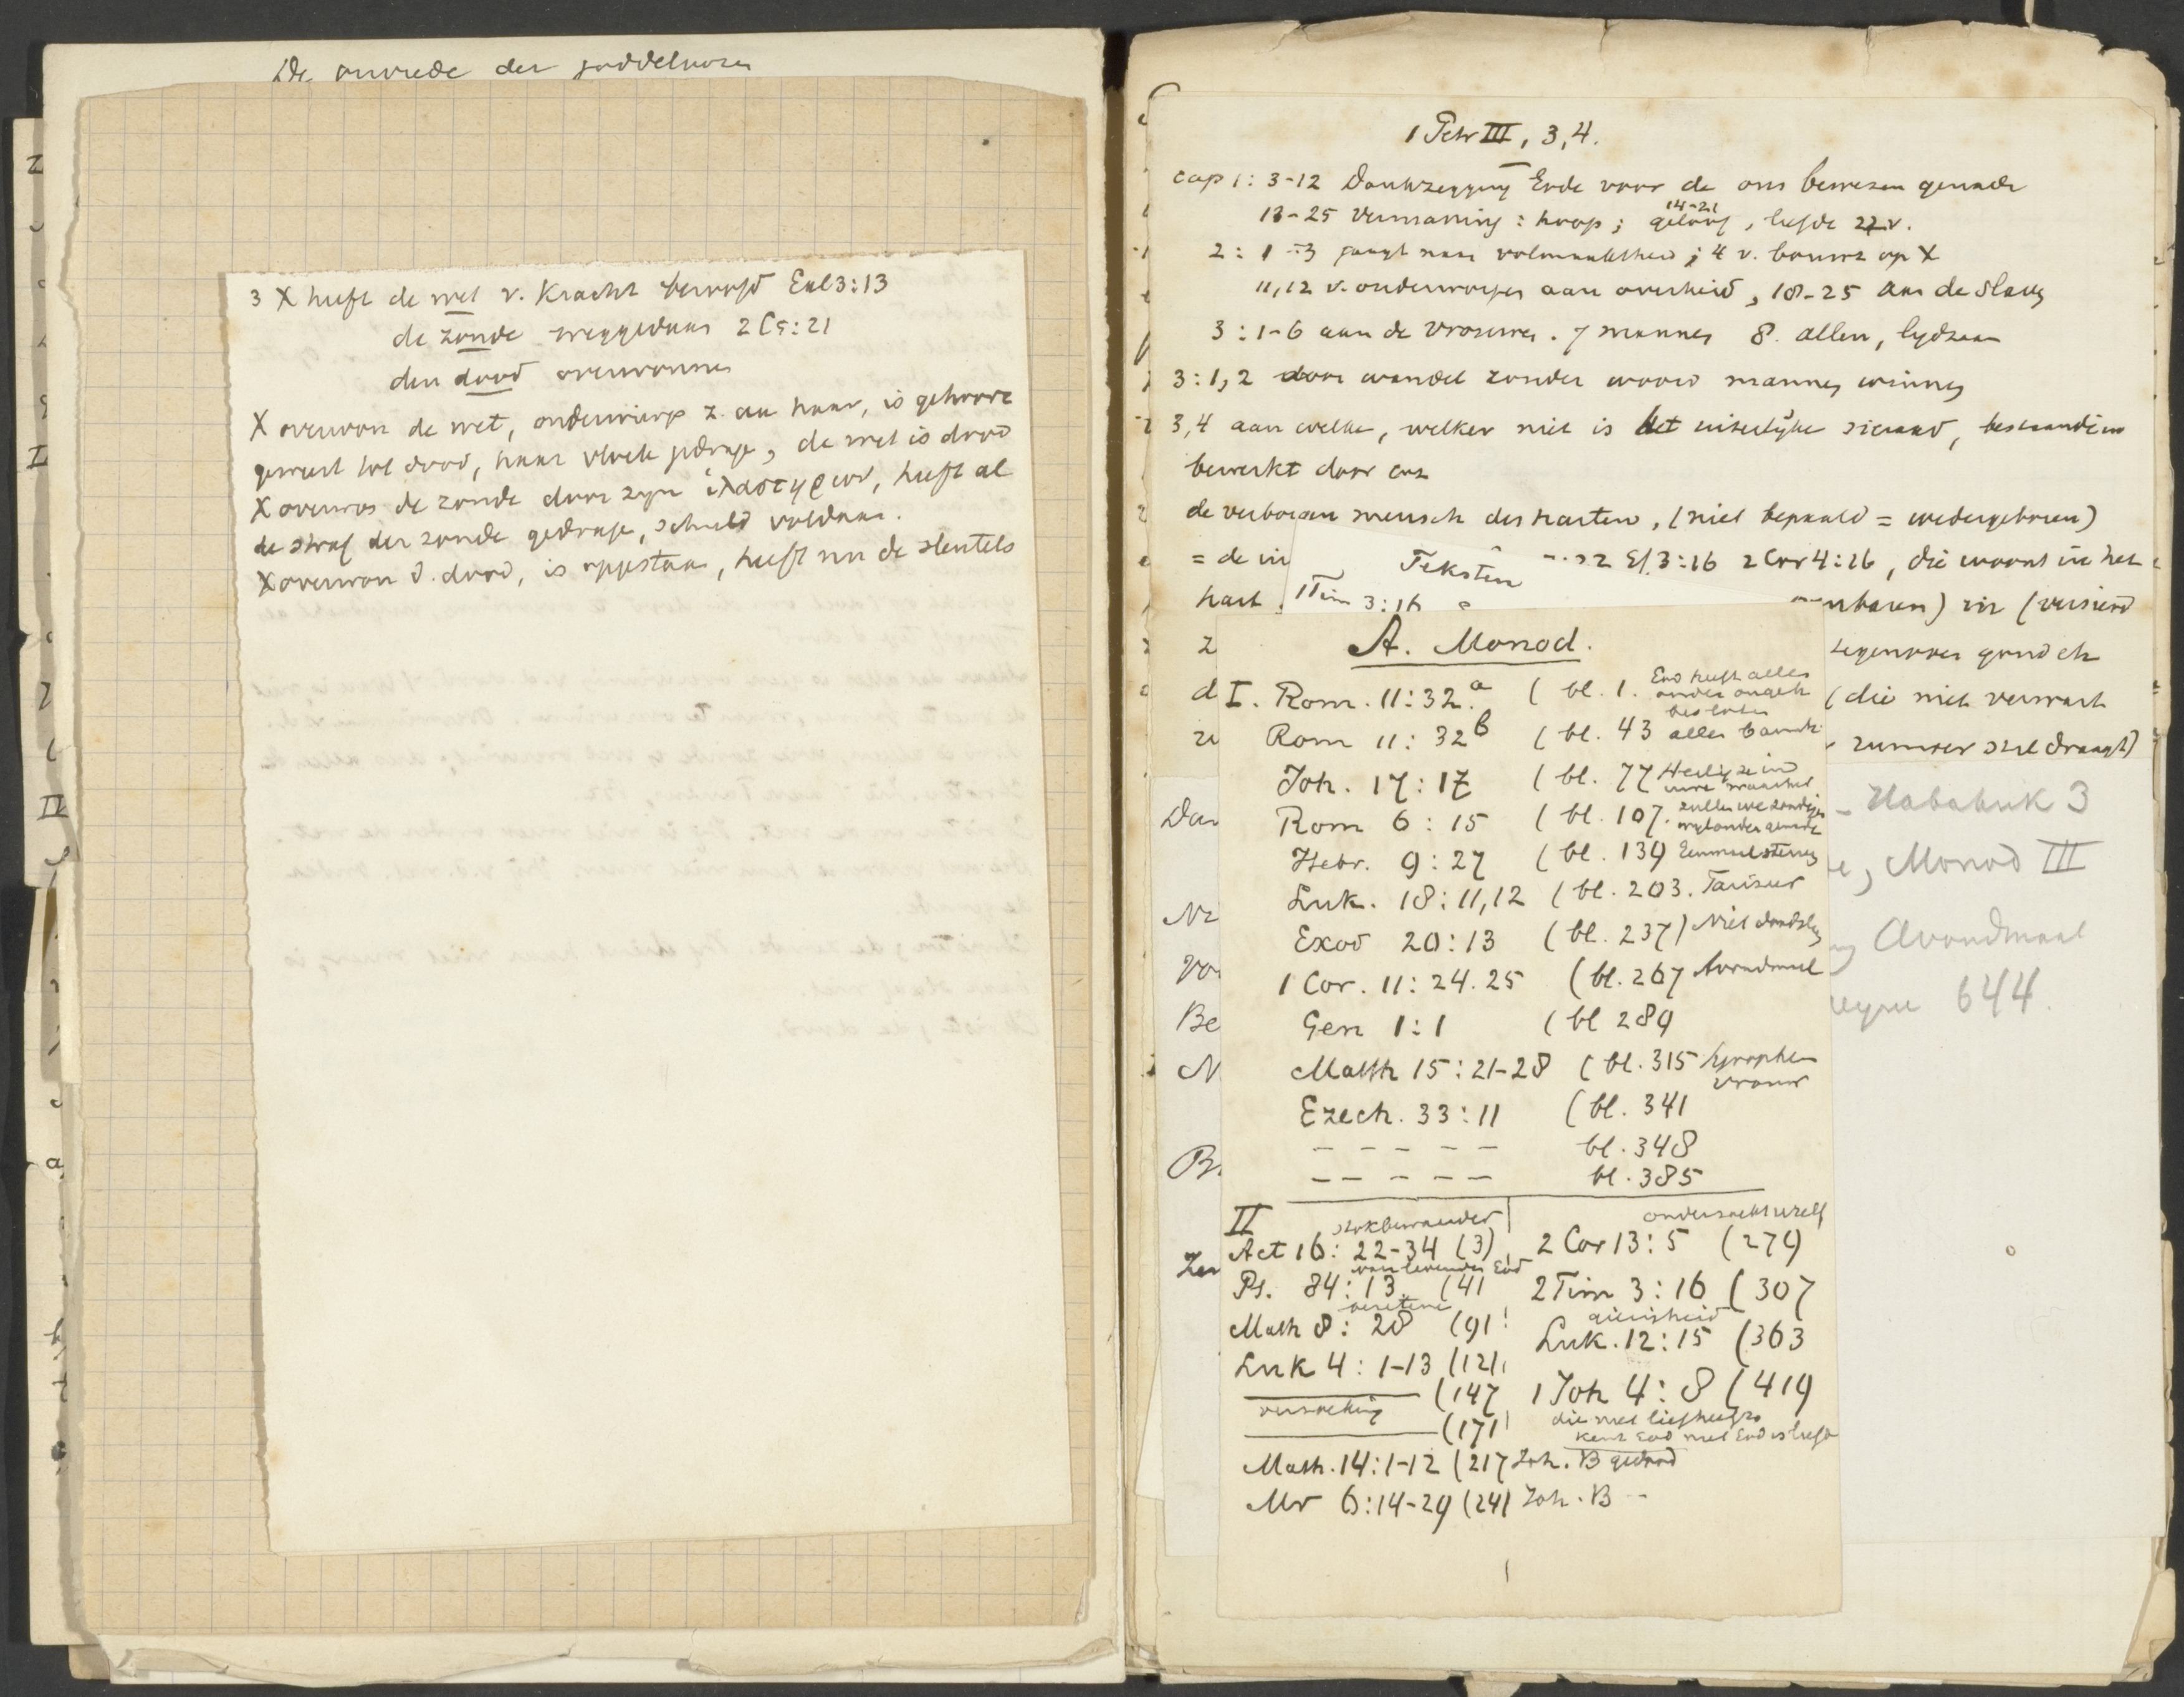 De onvrede der goddeloozen
3 X heeft de wet v. Kracht beroofd Gal 3:13
de zonde weggedaan 2 C 5:21
den dood overwonnen
X overwon de wet, onderwierp z. aan haar, is gehoorz
geweest tot dood, haar vloek gedrage, de wet is dood
X overwon de zonde door zijn ἱλαστηριον, heeft al
de straf der zonde gedrage, schuld voldaan.
X overwon d. dood, is opgestaan, heeft nu de sleutels
1 Petr III, 3,4.
cap 1: 3-12 Dankzegging Gode voor de ons bewezen genade
14-21
13-25 vermaning: hoop; geloof, liefde 22 v.
2: 1-3 jaagt naar volmaaktheid; 4 v. bouwt op X
11,12 v. onderworpen aan overheid, 18-25 aan de slaven
3: 1-6 aan de vrouwen. 7 mannen 8. allen, lydzaam
3: 1,2 door wandel zonder woord mannen winnen
3,4 aan welke, welker niet is het uiterlijke sieraad, bestaande in
bewerkt door enz
de verborgen mensch des harten, (niet bepaald = wedergeboren)
= de in
Teksten
Ef 3:16 2 Cor 4:16, die woont in het
hart.
1 Tim 3:16
in (versierd
z
tegenover goud etc
d
(die niet verwach
zi
draagt)
A. Monod.
I. Rom. 11:32.a ( bl. 1. God heeft alles
onder ongeh
besloten
Rom 11: 32 b ( bl. 43 alles barmh
Joh. 17: 17 ( bl. 77 Heilig ze in
uwe waarheid
Rom 6: 15 ( bl. 107. zullen we zondigen
wyl onder genade
Hebr. 9: 27 ( bl. 139 Eenmaal sterven
Luk. 18: 11,12 ( bl. 203. Farizeer
Exod 20: 13 ( bl. 237) Niet doodslag
1 Cor. 11: 24. 25 ( bl. 267 Avondmaal
Gen 1: 1 ( bl 289
Matth 15: 21-28 ( bl. 315 Syrophen
vrouw
Ezech. 33: 11 ( bl. 341
- - - - - bl. 348
- - - - - bl. 385
II
stokbewaarder
Act 16: 22-34 (3)
van levenden God
Ps. 84: 13. (41
bezetene
Math 8: 28 (91
Luk 4: 1-13 (121
(147
verzoeking
(171
Math. 14: 1-12 (217 Joh. B gedood
Mr 6: 14-29 (241 Joh. B --
onderzoekt uzelf
2 Cor 13: 5 (279
2 Tim 3: 16 (307
gierigheid
Luk. 12: 15 (363
1 Joh 4: 8 (419
die niet liefheeft
kent God niet God is liefde
Dan
Ne
Vo
Be
N
B
Zon
- Habakuk 3
e, Monod III
g Avondmaal
644.
Z
I
II